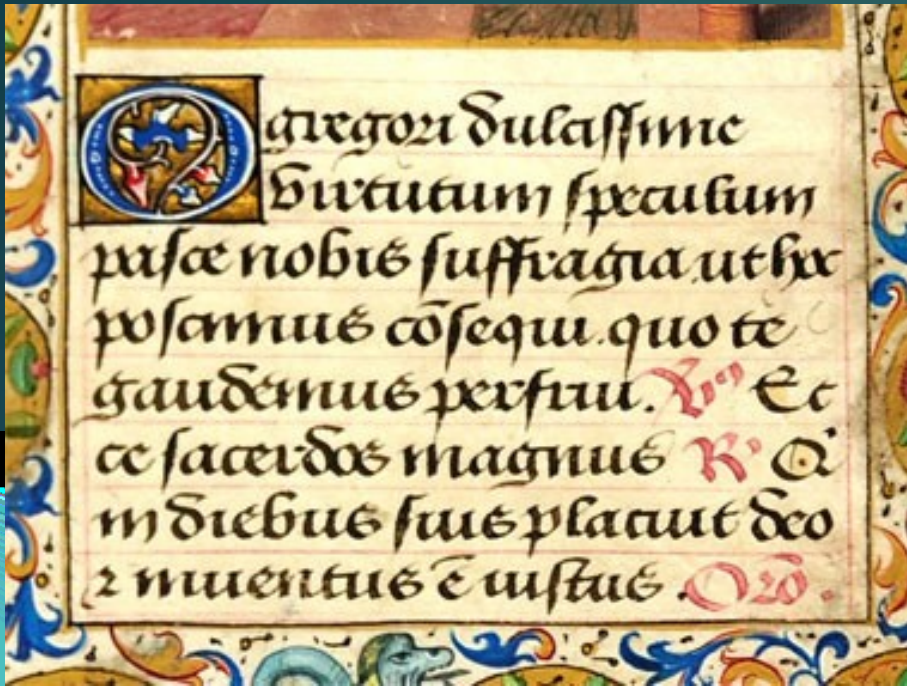 O gregori dulcissime
virtutum speculum
pasce nobis suffragia ut hoc
poscimus cōsequi. quo te
gaudemus perfrui. V̛ Ec
ce sacerdos magnus R̛ Q̇
in diebus suis placuit deo
⁊ inuentus ē iustus. Orō.